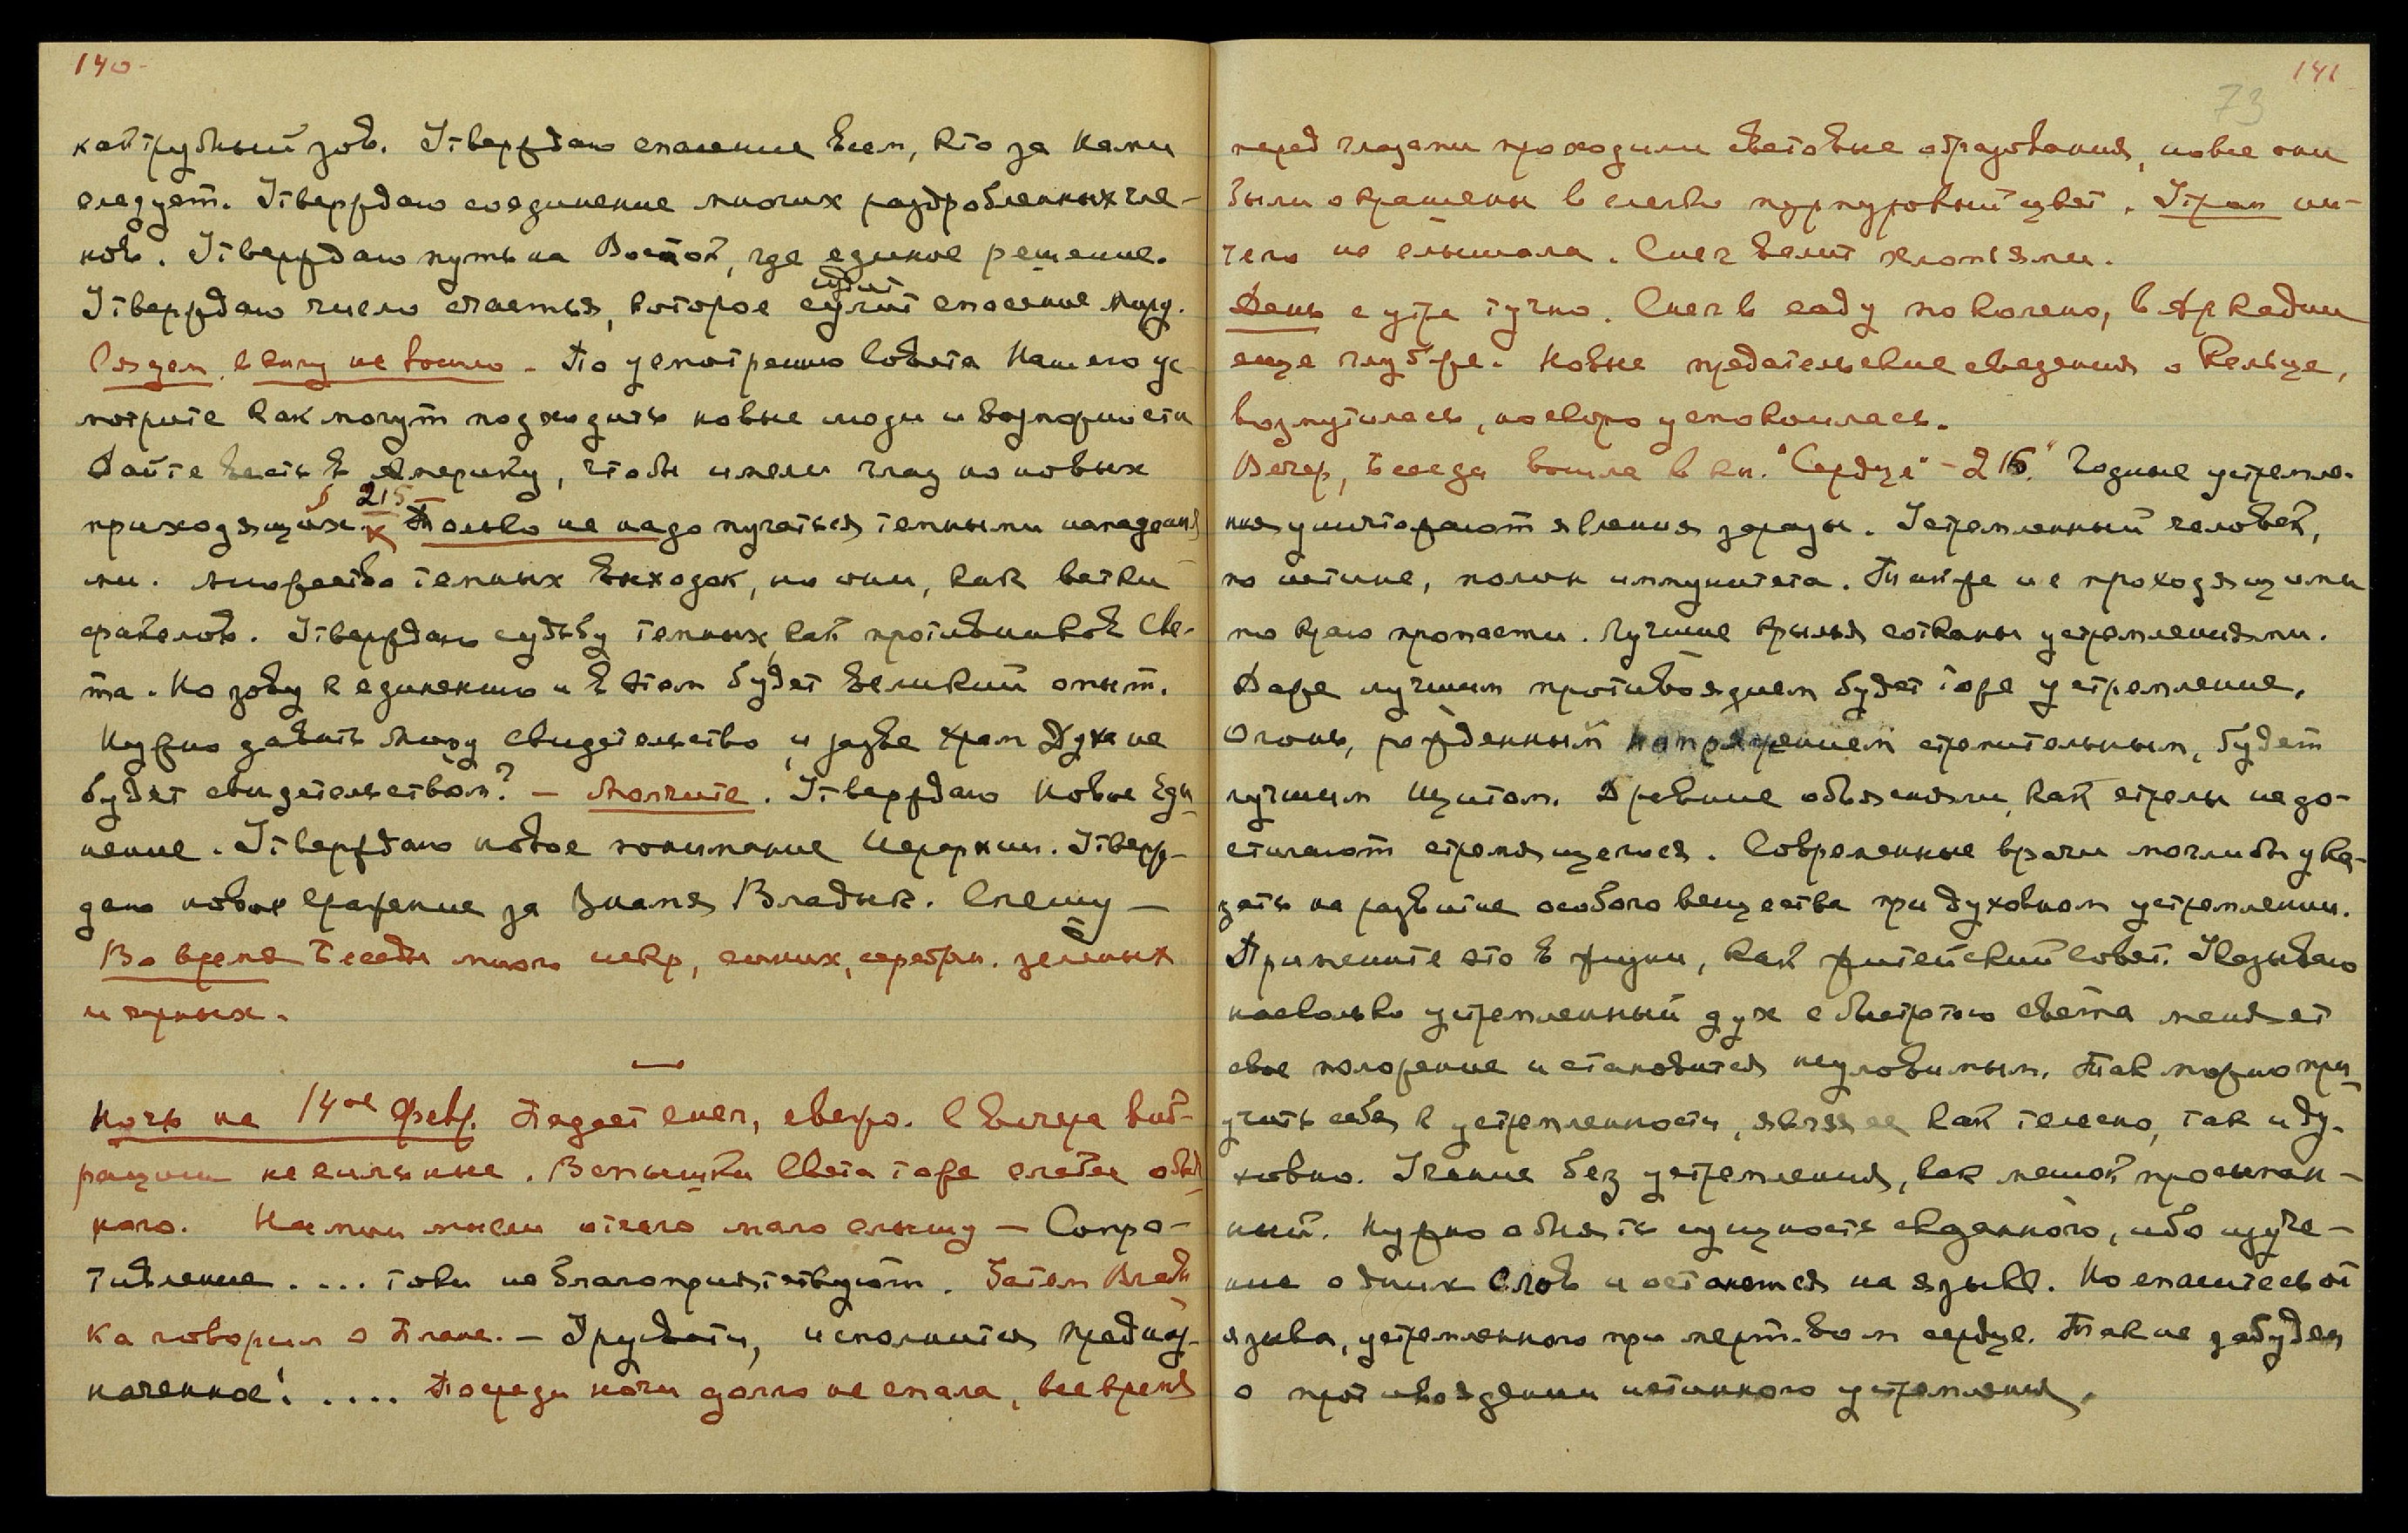 140-
как трубный зов. Утверждаю спасение всем, кто за нами
следует. Утверждаю соединение многих раздробленных чле-
нов. Утверждаю путь на Восток, где единое решение.
Утверждаю число счастья, которое сулит спасение миру.
в книгу не вошло - По усмотрению Совета Нашего ус
мотрите как могут подходить новые люди и возможности
Дайте весть в Америку, чтобы имели глаз на новых
§ 215
приходящих. х Только не надо пугаться темными нападения
ми. Множество темных выходок, но они, как ветки
факелов. Утверждаю судьбу темных, как противников Све-
та. Но зову к единению и в этом будет великий опыт.
Нужно давать Миру свидетельство, и разве Храм Духа не
будет свидетельством? - Молчите. Утверждаю новое Еди-
нение. Утверждаю новое понимание Иерархии. Утверж-
даю новое сражение за Знамя Владык. Спешу -
Во время Беседы много искр, синих, серебрян. зеленых
и черных.
Ночь на 14ое Февр. Падает снег, свежо. С вечера виб-
рации не сильные. Вспышки Света тоже слабее обык-
ного. На мои мысли отчего мало слышу - Сопро-
тивление .... токи не благоприятствуют. Затем Влады
ка говорил о Плане. - Урусвати, исполнится Предназ-
наченное! .... Посреди ночи долго не спала, все время
141
73
перед глазами проходили световые образования, новые они
были окрашены в слегка пурпуровый цвет. Утром ни-
чего не слышала. Снег валит хлопьями.
День с утра тучно. Снег в саду по колено, в Аркадии
еще глубже. Новые предательские сведения о Кельце,
возмутилась, но скоро успокоилась.
Вечер, Беседа вошла в кн. "Сердце" - 216." Годные устремле-
ния уничтожают явления заразы. Устремленный человек,
по истине, полон иммунитета. То же и с проходящими
по краю пропасти. Лучшие крылья сотканы устремлениями.
Даже лучшим противоядием будет тоже устремление.
Огонь, рожденный напряжением стремительным, будет
лучшим Щитом. Древние объясняли, как стрелы не до-
стигают стремящегося. Современные врачи могли бы ука-
зать на развитие особого вещества при духовном устремлении.
Примените это в жизни, как житейский совет. Указываю
насколько устремленный дух с быстротою света меняет
свое положение и становится неуловимым. Так можно при-
учить себя к устремленности, являя ее как телесно, так и ду-
ховно. Учение без устремления, как мешок просыпан-
ный. Нужно обнять сущность сказанного, ибо изуче-
ние одних слов и останется на языке. Но спаситесь от
языка, устремленного при мертвом сердце. Так не забудем
о противоядии истинного устремления.